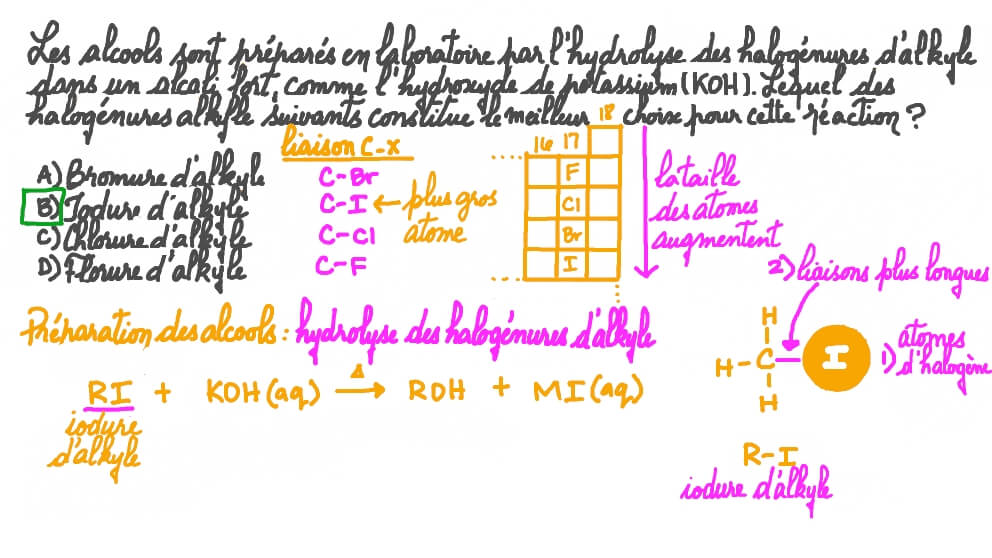 Les alcools sont préparés en laboratoire par l'hydrolyse des halogénures d'alkyle
dans un alcali fort, comme l'hydroxyde de potassium (KOH). Lequel des
halogénures alkyle suivants constitue le meilleur choix pour cette réaction ?
A) Bromure d'alkyle
B) Iodure d'alkyle
C) Chlorure d'alkyle
D) Florure d'alkyle
liaison C-X
C-Br
C-I ← plus gros
atome
C-Cl
C-F
16 17 18
F
Cl
Br
I
la taille
des atomes
augmentent
2) liaisons plus longues
Préparation des alcools : hydrolyse des halogénures d'alkyle
RI + KOH (aq) Δ → ROH + MI (aq)
iodure
d'alkyle
H
H-C- I
H
1) atomes
d'halogène
R-I
iodure d'alkyle